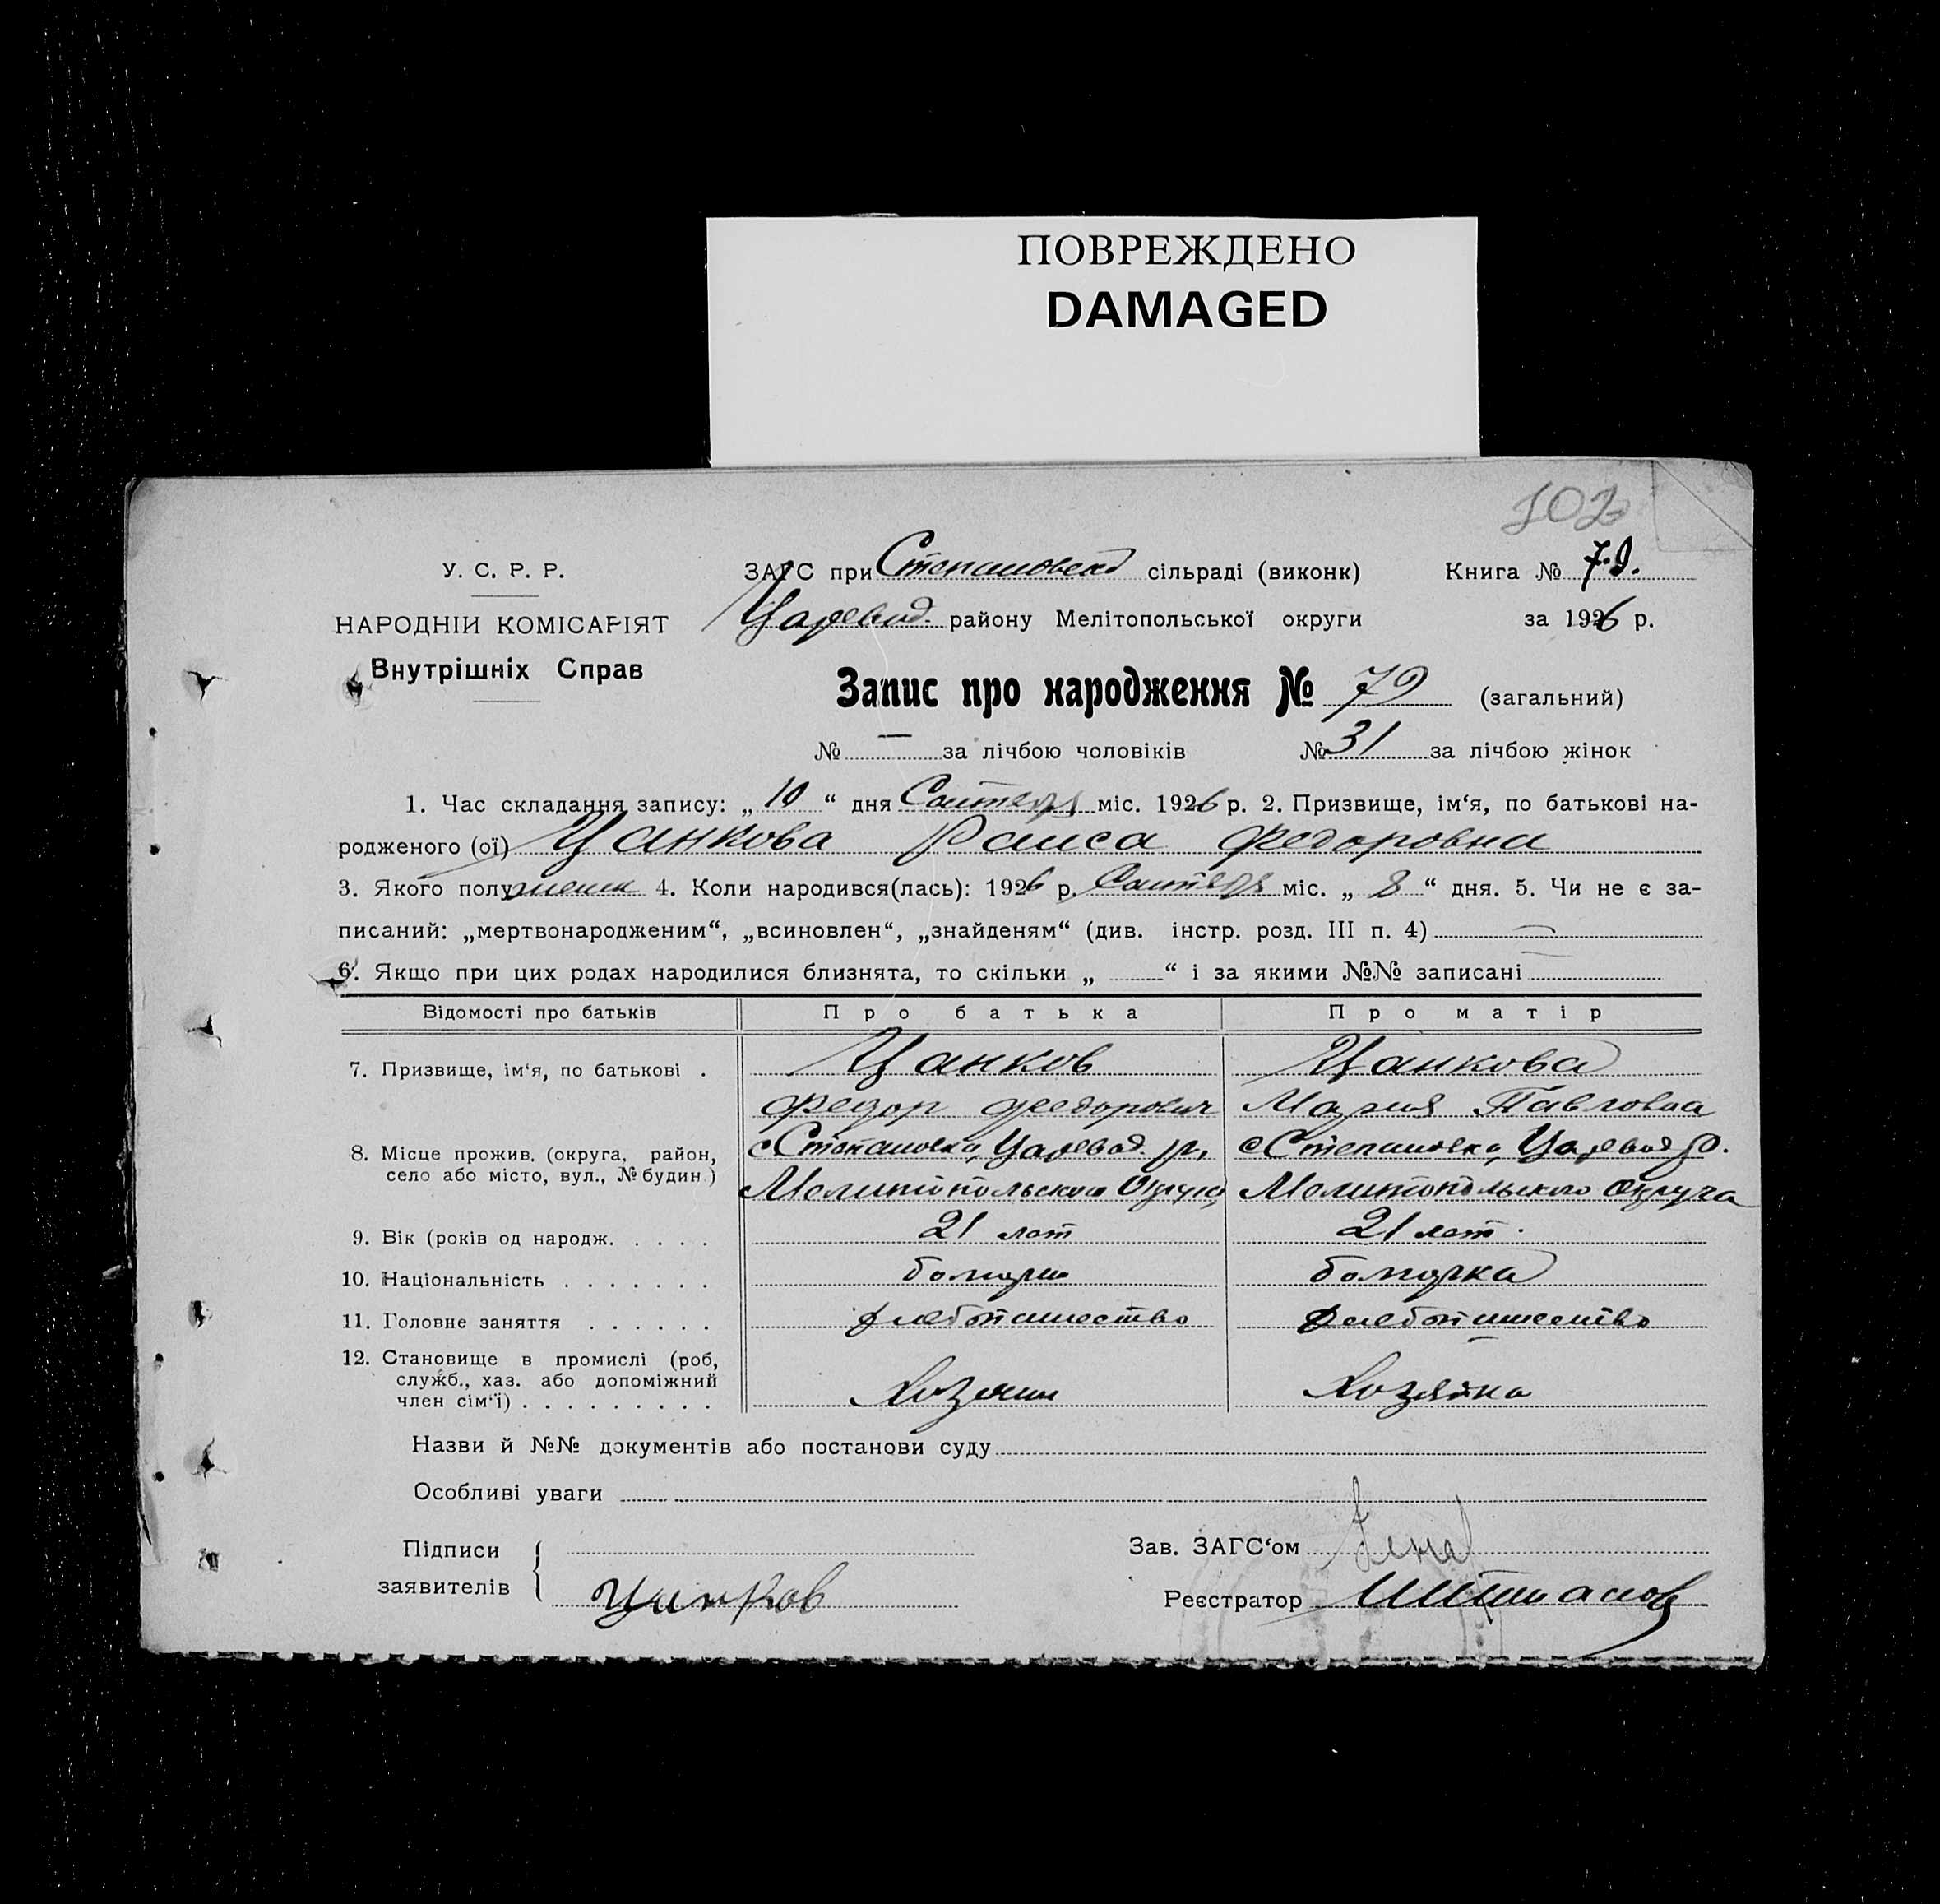 ПОВРЕЖДЕНО
DAMAGED
102
У. С. Р. Р.
НАРОДНІЙ КОМІСАРІЯТ
Внутрішніх Справ
ЗАГС при Степановской сільраді (виконк) Книга № 79.
Царевод. району Мелітопольської округи за 1926 р.
Запис про народження № 79 (загальний)
№ — за лічбою чоловіків № 31 за лічбою жінок
1. Час складання запису: „ 10 “ дня Сентября міс. 1926 р. 2. Призвище, ім‘я, по батькові на-
родженого (ої) Цанкова Раиса Федоровна
3. Якого полу женск 4. Коли народився(лась): 1926 р. Сентября міс. „ 8 “ дня. 5. Чи не є за-
писаний: „мертвонародженим“, „всиновлен“, „знайденям“ (див. інстр. розд. III п. 4) —
6. Якщо при цих родах народилися близнята, то скільки „ “ і за якими №№ записані
Відомості про батьків Про батька Про матір
7. Призвище, ім‘я, по батькові . Цанков Цанкова
Федор Федорович Мария Павловна
8. Місце прожив. (округа, район, с Степановка, Царевод. р, с Степановка, Царевод р.
село або місто, вул., № будин.) Мелитопольского Округа Мелитопольского Округа
9. Вік (років од народж. . . . . 21 лет 21 лет.
10. Національність . . . . . . . болгарин болгарка
11. Головне заняття . . . . . . хлебопашество хлебопашество
12. Становище в промислі (роб,
служб., хаз. або допоміжний
член сім‘ї) . . . . . . . . . Хозяин Хозяйка
Назви й №№ документів або постанови суду
Особливі уваги
Підписи
заявителів Цанков
Зав. ЗАГС‘ом
Реєстратор